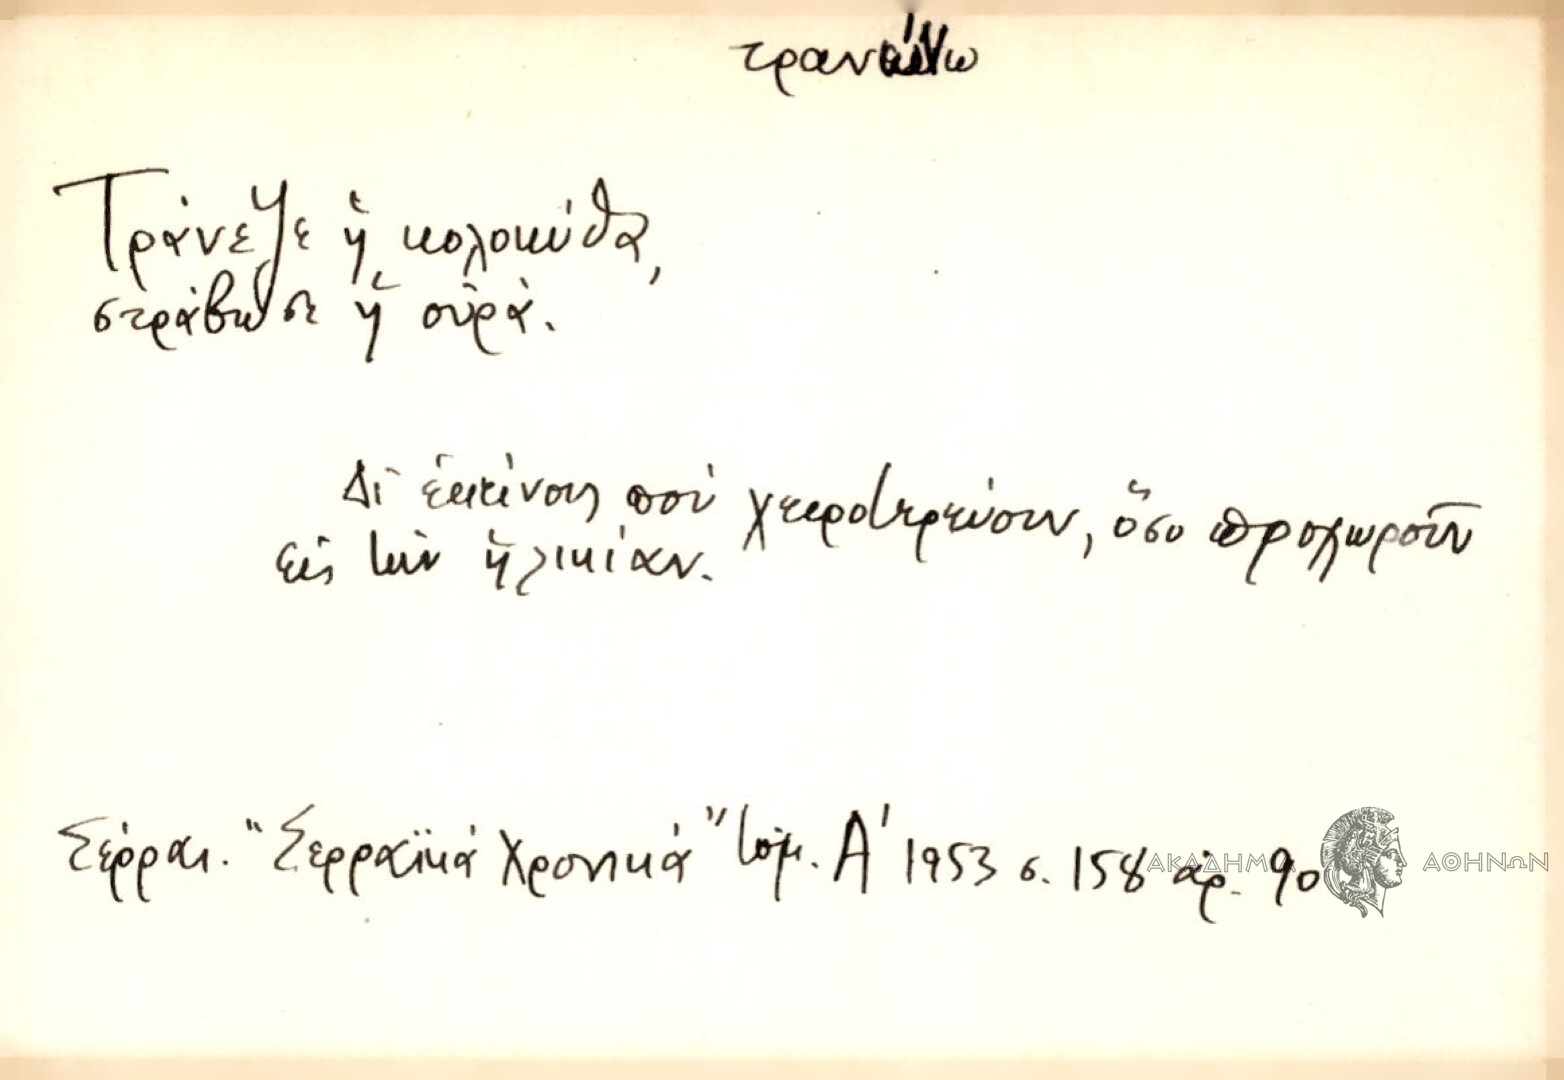 Τράνεψε ἡ κολοκύθα,
στράβωσε ἡ οὐρά.
Δι' ἐκείνους ποὺ χειροτερεύουν, ὅσο προχωροῦν
εἰς τὴν ἡλικίαν.
Σέρραι. "Σερραϊκά Χρονικά" τόμ. Α' 1953 σ. 158 ἀρ. 90
ΑΚΑΔΗΜΙΑ ΑΘΗΝΩΝ